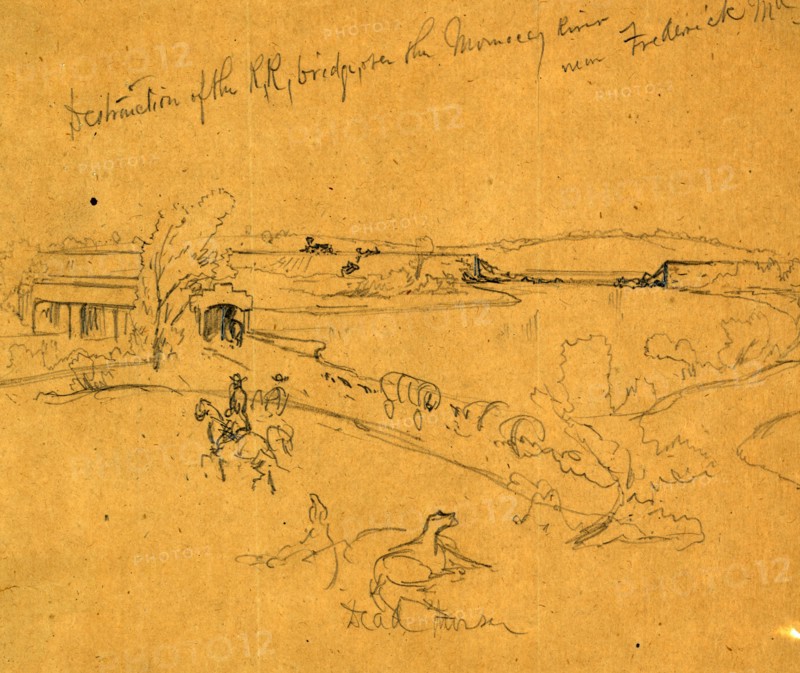 Destruction of the R,R, bridge, over the Monocacy River
near Frederick Md
Dead Horses
PHOTO12